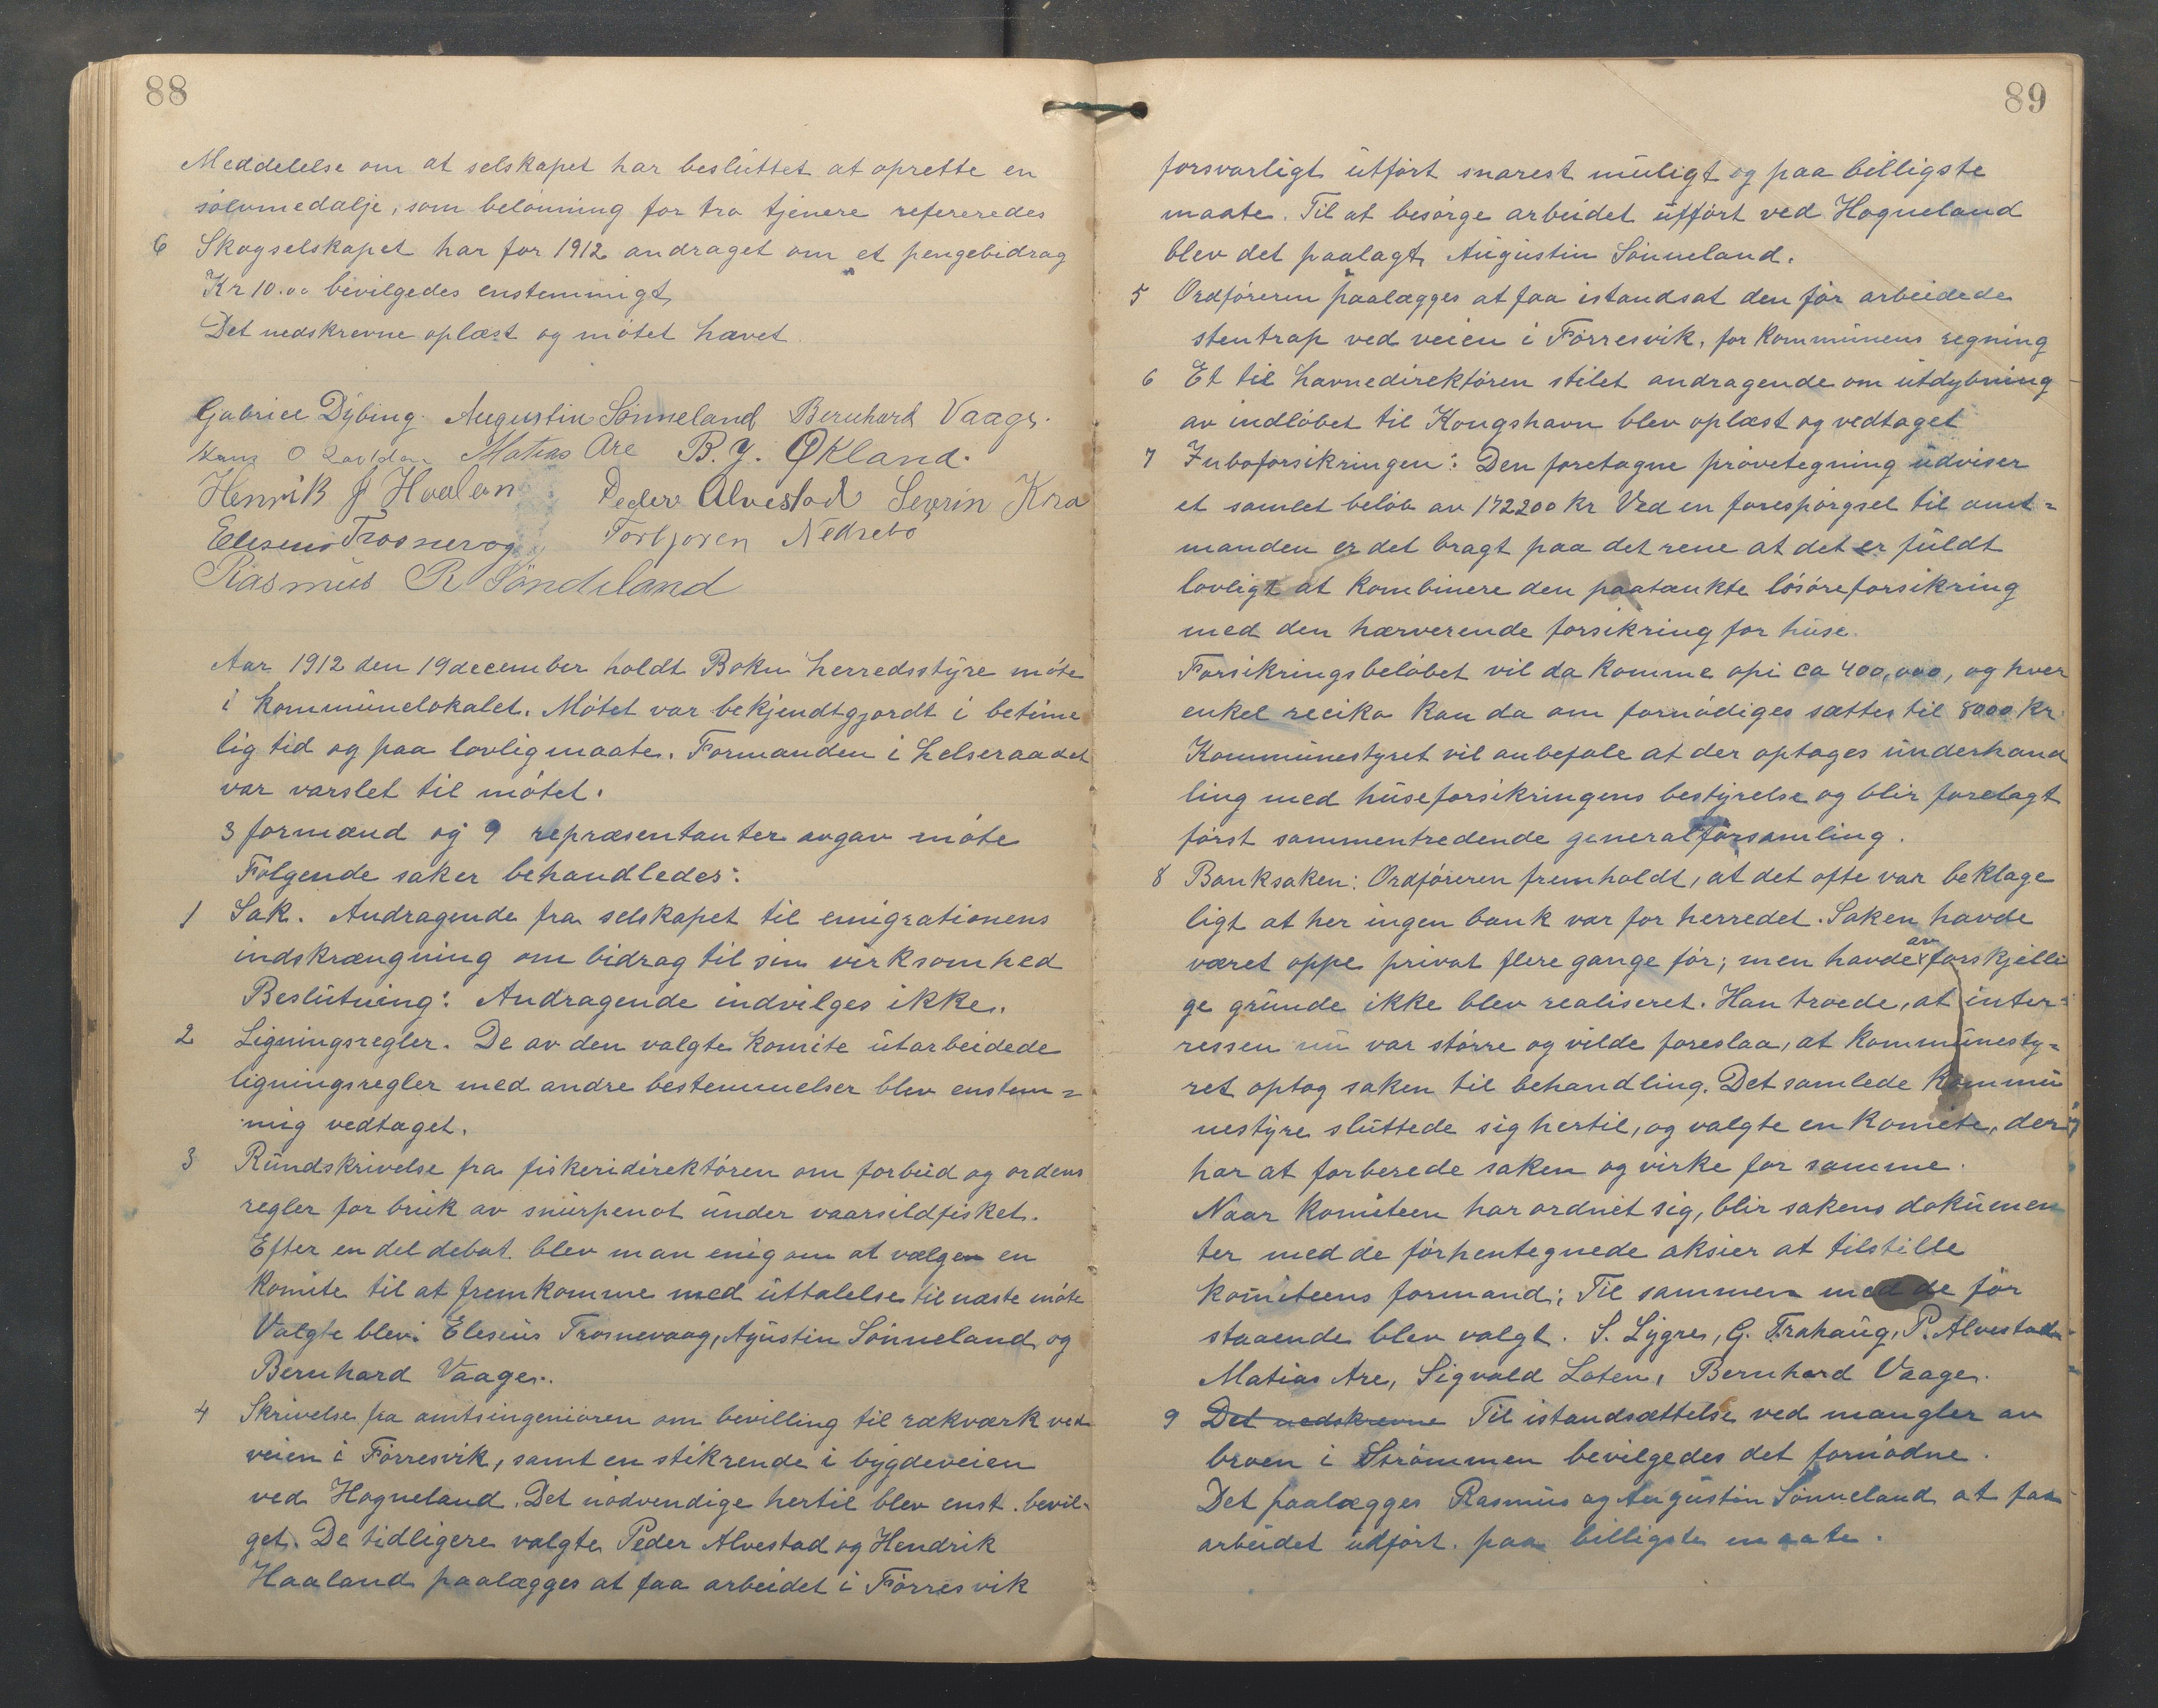 88
Meddelelse om at selskapet har besluttet at oprette en
sølvmedalje, som belønning for tro tjenere refereredes
6 Skogselskapet har for 1912 andraget om et pengebidrag
Kr 10.00 bevilgedes enstemmigt
Det nedskrevne oplæst og møtet hævet
Gabriel Dybing. Augustin Sønneland Bernhard Vaage.
Hans O Matias Are B. G. Økland.
Henrik J Haalan Peder Alvestad Severin Kra
Eleseus Trosnevag Torbjoren Nedrebø
Rasmus R Søndeland
Aar 1912 den 19 december holdt Bokn herredsstyre møte
i kommunelokalet. Møtet var bekjendtgjordt i betime
lig tid og paa lovlig maate. Formanden i helseraadet
var varslet til møtet.
3 formænd og 9 repræsentanter avgav møte
Følgende saker behandledes:
1 Sak. Andragende fra selskapet til emigrationens
indskrængning om bidrag til sin virksomhed
Beslutning: Andragende indvilges ikke.
2 Ligningsregler. De av den valgte komite utarbeidede
ligningsregler med andre bestemmelser blev enstem=
mig vedtaget.
3 Rundskrivelse fra fiskeridirektøren om forbud og ordens
regler for bruk av snurpenot under vaarsildfisket.
Efter en del debat blev man enig om at vælgen en
komite til at fremkomme med uttalelse til næste møte
Valgte blev: Eleseus Trosnevaag, Agustin Sønneland og
Bernhard Vaage.
4 Skrivelse fra amtsingeniøren om bevilling til rækværk ved
veien i Førresvik, samt en stikrende i bygdeveien
ved Hogneland. Det nødvendige hertil blev enst. bevil-
get. De tidligere valgte Peder Alvestad og Hendrik
Haaland paalægges at faa arbeidet i Førresvik
89
forsvarligt utført snarest muligt og paa billigste
maate. Til at besørge arbeidet utført ved Hogneland
blev det paalagt Augustin Sønneland.
5 Ordføreren paalægges at faa istandsat den før arbeidede
stentrap ved veien i Førresvik, for kommunens regning
6 Et til havnedirektøren stilet andragende om utdybning
av indløbet til Kongshavn blev oplæst og vedtaget
7 Inboforsikringen: Den foretagne prøvetegning udviser
et samlet beløb av 172200 kr Ved en forespørgsel til amt=
manden er det bragt paa det rene at det er fuldt
lovligt at kombinere den paatænkte løsøreforsikring
med den hærverende forsikring for huse.
Forsikringsbeløbet vil da komme opi ca 400,000, og hver
enkel reciko kan da om fornødiges sættes til 8000 kr
Kommunestyret vil anbefale at der optages underhand
ling med huseforsikringens bestyrelse og blir forelagt
først sammentredende generalforsamling.
8 Banksaken: Ordføreren fremholdt, at det ofte var beklage
ligt at her ingen bank var for herredet. Saken havde
været oppe privat flere gange før; men havde av forskjelli
ge grunde ikke blev realiseret. Han troede, at inter=
ressen nu var større og vilde foreslaa, at kommunesty=
ret optog saken til behandling. Det samlede kommu
nestyre sluttede sig hertil, og valgte en komite, der
har at forberede saken og virke for samme.
Naar komiteen har ordnet sig, blir sakens dokumen
ter med de førhentegnede aksier at tilstille
komiteens formand; Til sammen med de før
staaende blev valgt. S. Lygre, G. Trahaug, P. Alvestad
Matias Are, Sigvald Loten, Bernhard Vaage.
9 Det nedskrevne Til istandsættelse ved mangler av
broen i Strømmen bevilgedes det fornødne.
Det paalægges Rasmus og Augustin Sønneland at faa
arbeidet utført. paa billigste maate.